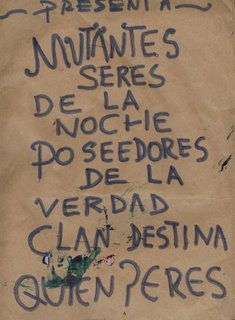 PRESENTA
MUTANTES
SERES
DE LA
NOCHE
POSEEDORES
DE LA
VERDAD
CLAN DESTINA
QUIEN ? ERES